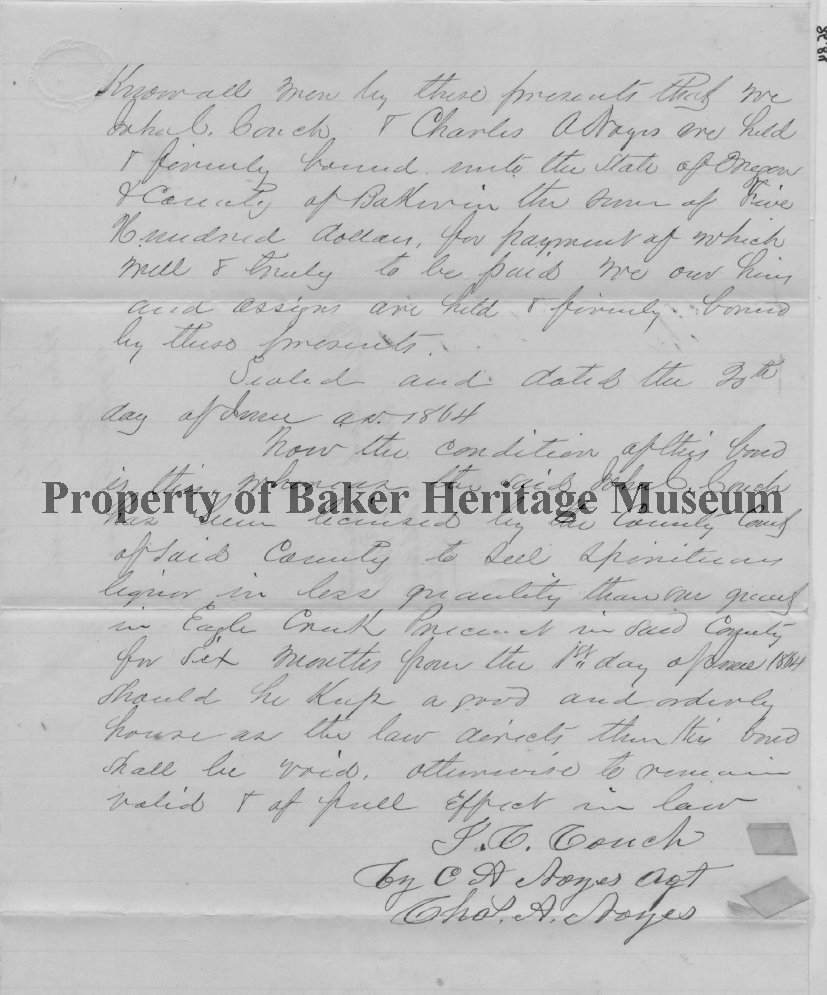 Know all men by these presents that we
John C. Couch & Charles A Noyes are held
& firmly bound unto the State of Oregon
& County of Baker in the sum of Five
Hundred dollars, for payment of which
well & truly to be paid we our heirs
and assigns are held & firmly bound
by these presents.
Sealed and dated the 20th
day of June AD. 1864
Now the condition of this bond
is this, whereas the said John C. Couch
Property of Baker Heritage Museum
has been licensed by the County Court
of said County to sell spirituous
liquor in less quantity than one quart
in Eagle Creek Precinct in said County
for Six months from the 1st day of June 1864
should he keep a good and orderly
house as the law directs then this bond
shall be void, otherwise to remain
valid & of full Effect in law
J. C. Couch
by C A Noyes Agt
Chas. A. Noyes